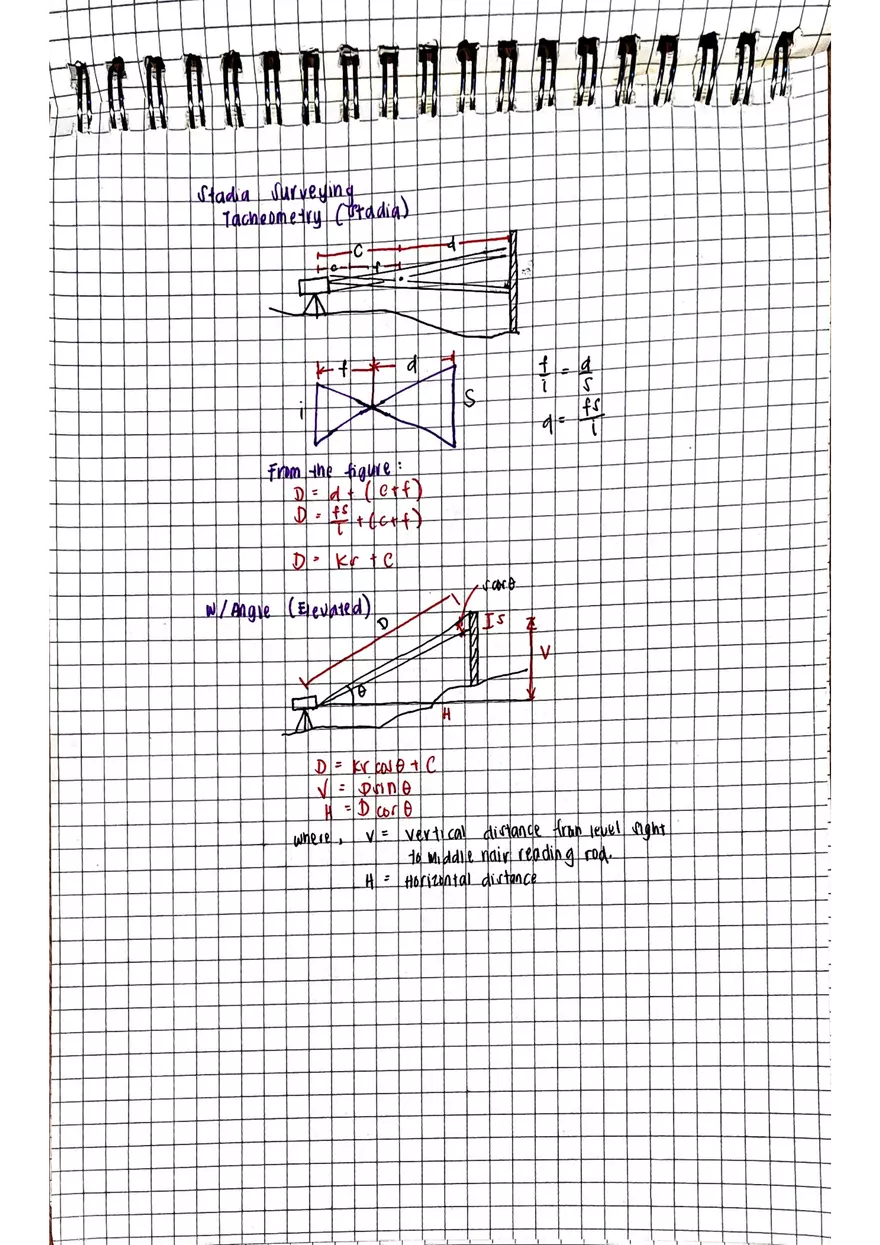 Stadia Surveying
Tacheometry (Stadia)
C d
c f
f d
i S
f/i = d/s
d = fs/i
From the figure:
D = d + (c+f)
D = fs/i + (c+f)
D = Kr + C
W/ Angle (Elevated)
s cos θ
D
I S
V
θ
H
D = Kr cos θ + C
V = D sin θ
H = D cos θ
where, V = vertical distance from level sight
to middle hair reading rod.
H = Horizontal distance